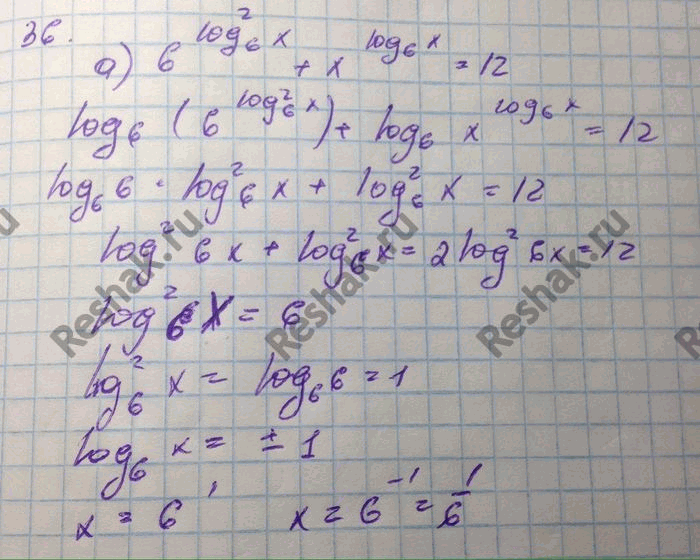 36.
а) 6^(log²₆ x) + x^(log₆ x) = 12
log₆ (6^(log²₆ x)) + log₆ x^(log₆ x) = 12
log₆ 6 · log²₆ x + log²₆ x = 12
log² 6 x + log²₆ x = 2 log² 6x = 12
log²₆ x = 6
log²₆ x = log₆ 6 = 1
log₆ x = ± 1
x = 6¹ x = 6⁻¹ = 1/6
Reshak.ru
Reshak.ru
Reshak.ru
Reshak.ru
Reshak.ru